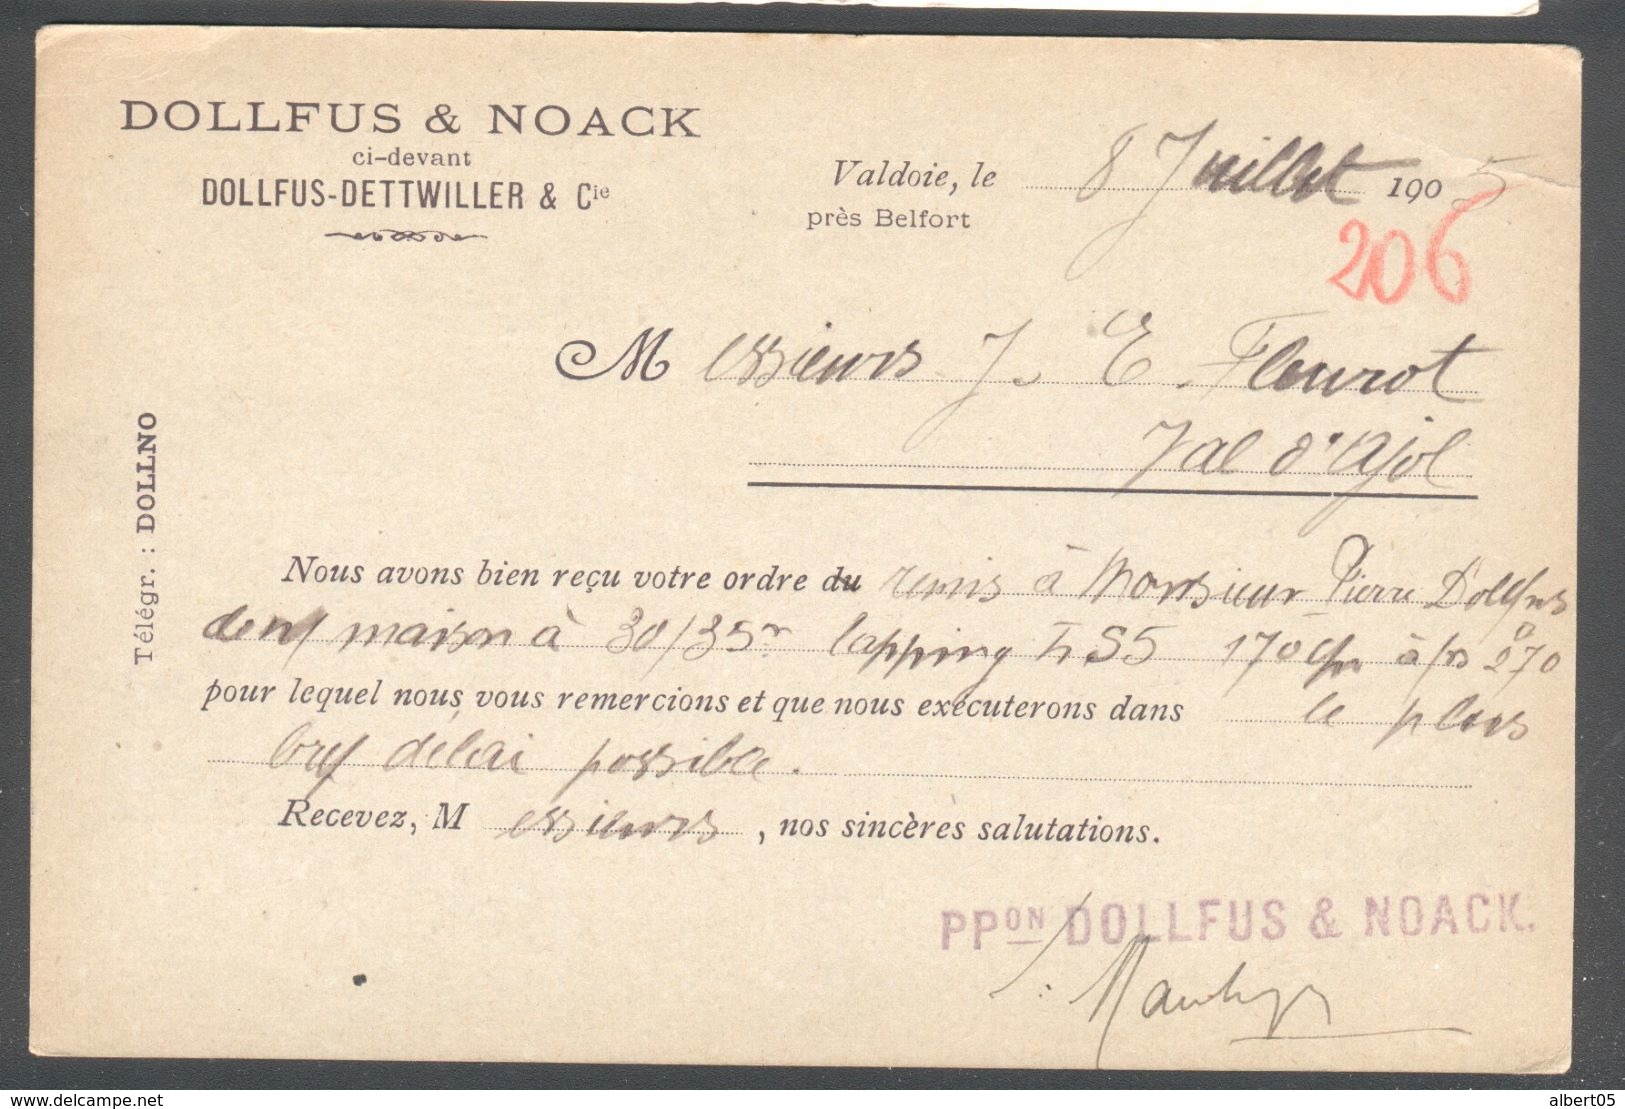 DOLLFUS & NOACK
ci-devant
DOLLFUS-DETTWILLER & Cie
Valdoie, le 8 Juillet 1905
près Belfort
206
Messieurs J. E. Fleurot
Val d'Ajol
Télégr. : DOLLNO
Nous avons bien reçu votre ordre du remis à Monsieur Pierre Dollfus
maison à 30/35 lapping 170 à 270
pour lequel nous vous remercions et que nous exécuterons dans le plus
bref délai possible.
Recevez, Messieurs, nos sincères salutations.
PPON DOLLFUS & NOACK.
delcampe.net
albert05